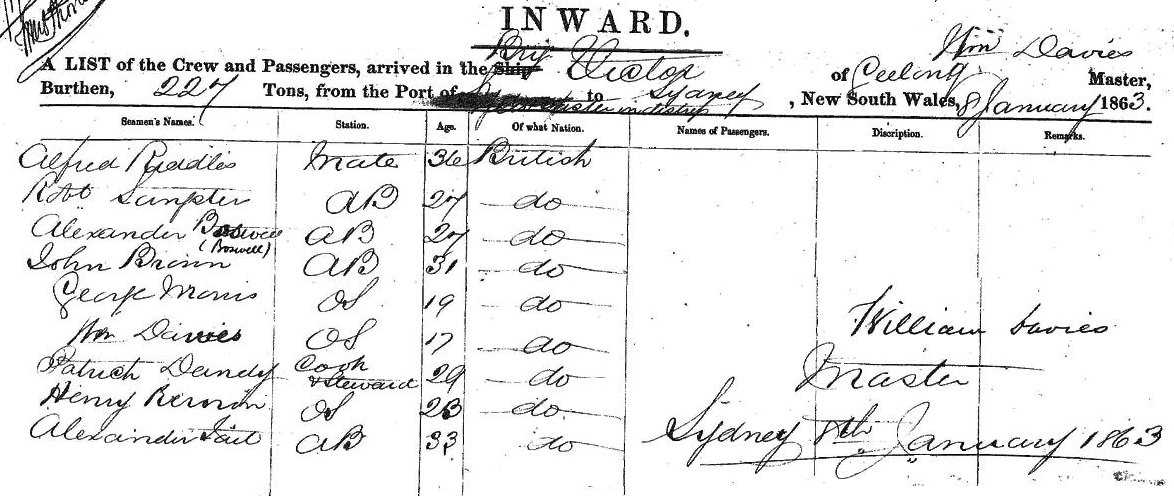 INWARD.
Brig Wm Davies
A LIST of the Crew and Passengers, arrived in the Ship of Geelong Master,
Burthen, 227 Tons, from the Port of to Sydney, New South Wales, 8 January 1863.
Seamen's Names. Station. Age. Of what Nation. Names of Passengers. Discription. Remarks.
Alfred Mate 36 British
Robt Sumpter AB 27 do
Alexander Boswell AB 27 do
(Boswell)
John Brown AB 31 do
George Morris OS 19 do
William Davies
Wm Davies OS 17 do
Master
Patrick Dandy Cook & Steward 29 do
Henry OS 23 do
Sydney 8th January 1863
Alexander Tait AB 33 do